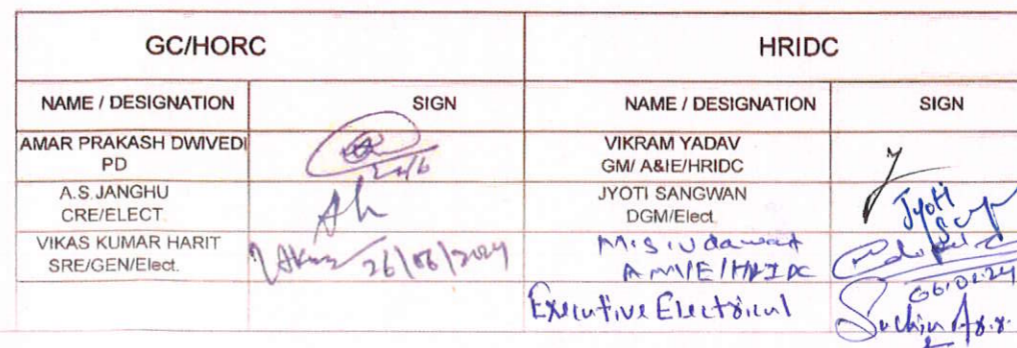 GC/HORC HRIDC
NAME / DESIGNATION SIGN NAME / DESIGNATION SIGN
AMAR PRAKASH DWIVEDI
PD
VIKRAM YADAV
GM/ A&IE/HRIDC
A.S.JANGHU
CRE/ELECT.
JYOTI SANGWAN
DGM/Elect.
Jyoti
VIKAS KUMAR HARIT
SRE/GEN/Elect.
26/06/2024
AM/E/HRIDC
Executive Electrical